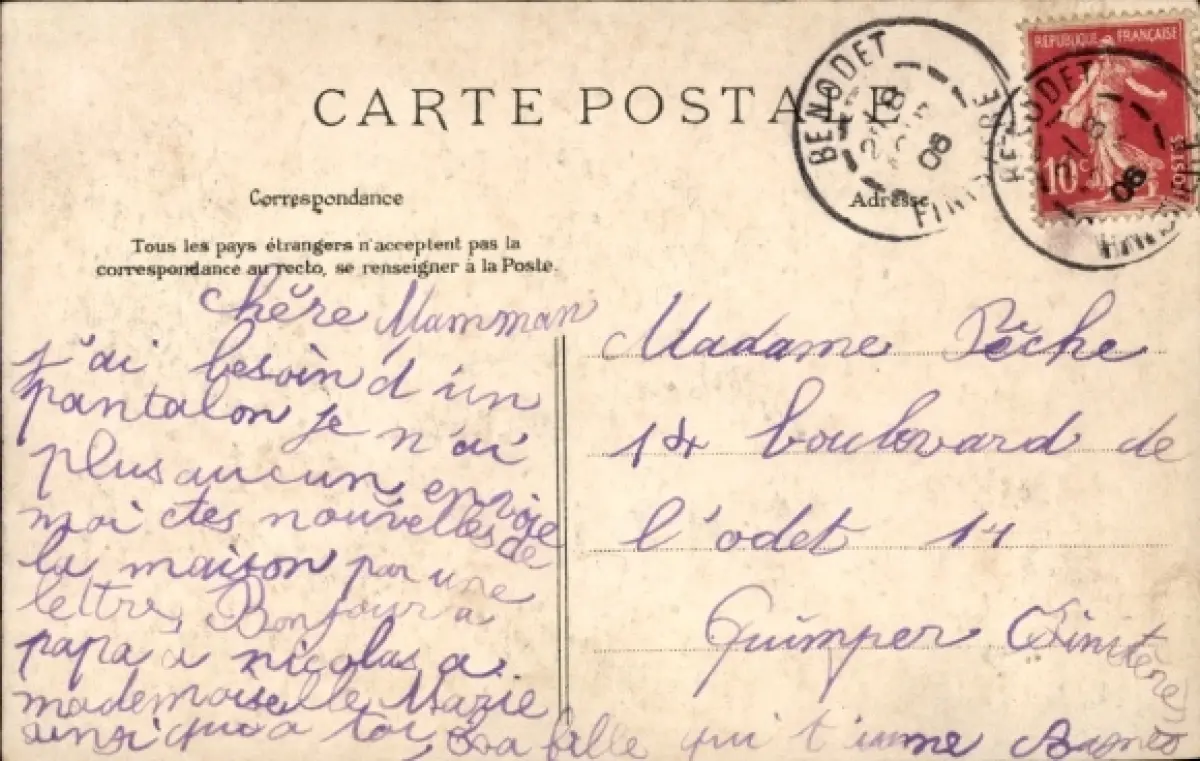 CARTE POSTALE
BENODET
FINISTERE
08
REPUBLIQUE FRANÇAISE
10c
POSTES
BENODET
08
Correspondance
Adresse
Tous les pays étrangers n'acceptent pas la
correspondance au recto, se renseigner à la Poste.
Chère Mamman
j'ai besoin d'un
pantalon je n'ai
plus aucun envoie
moi des nouvelles de
la maison par une
lettre, Bonjour a
papa a nicolas a
mademoiselle Marie
ainsi qua toi, ta fille qui t'aime Agnès
Madame Pêche
boulovard de
l'odet 11
Quimper Finistère